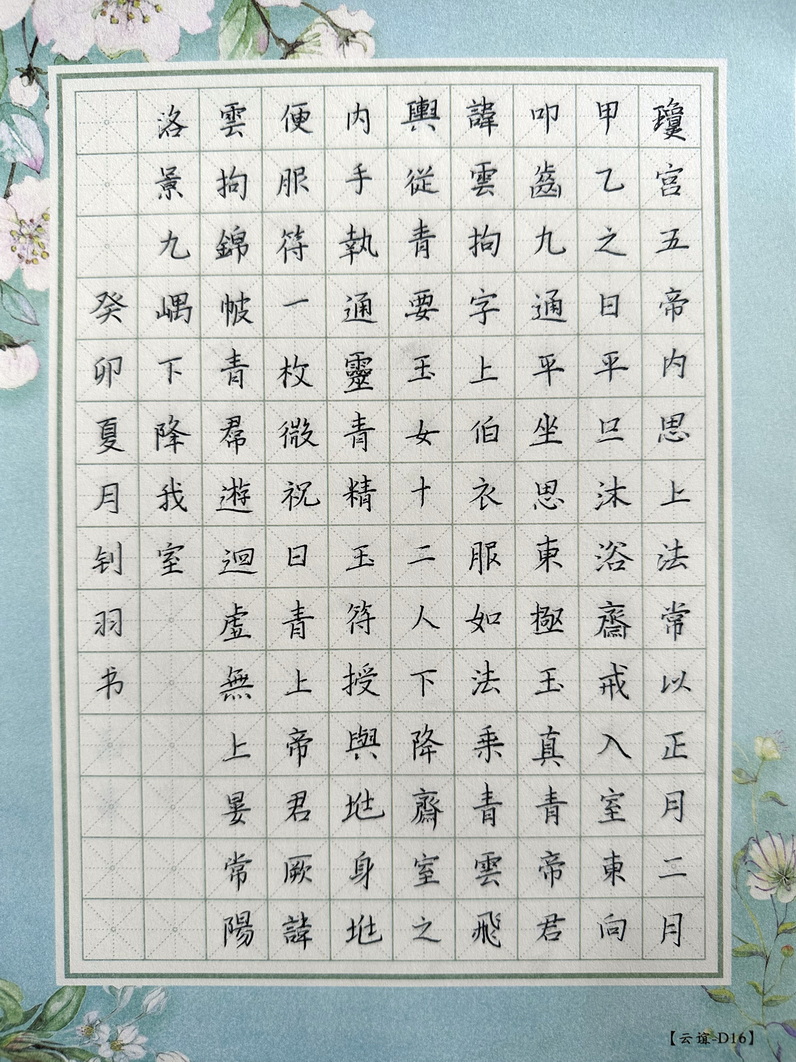 瓊宮五帝内思上法常以正月二月
甲乙之日平旦沐浴齋戒入室東向
叩齒九通平坐思東極玉真青帝君
諱雲拘字上伯衣服如法乗青雲飛
輿從青要玉女十二人下降齋室之
内手執通靈青精玉符授與地身地
便服符一枚微祝曰青上帝君厥諱
雲拘錦帔青帬遊迴虛無上晏常陽
洛景九嵎下降我室
癸卯夏月钊羽书
【云谊-D16】